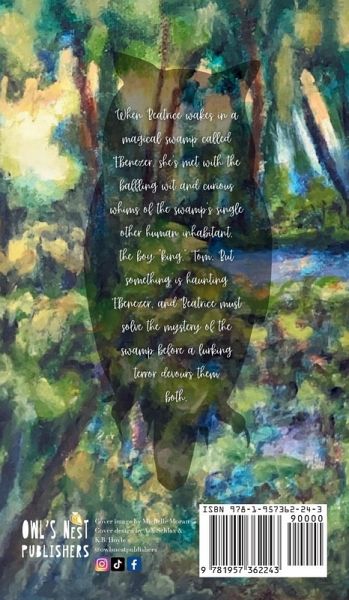 When Beatrice wakes in a
magical swamp called
Ebenezer, she's met with the
baffling wit and curious
whims of the swamp's single
other human inhabitant,
the boy "king," Tom. But
something is haunting
Ebenezer, and Beatrice must
solve the mystery of the
swamp before a lurking
terror devours them
both.
OWL'S NEST
PUBLISHERS
Cover image by Michelle Moran
Cover design by
K.B. Hoyle
@owlsnestpublishers
ISBN 978-1-957362-24-3
90000
9 781957 362243